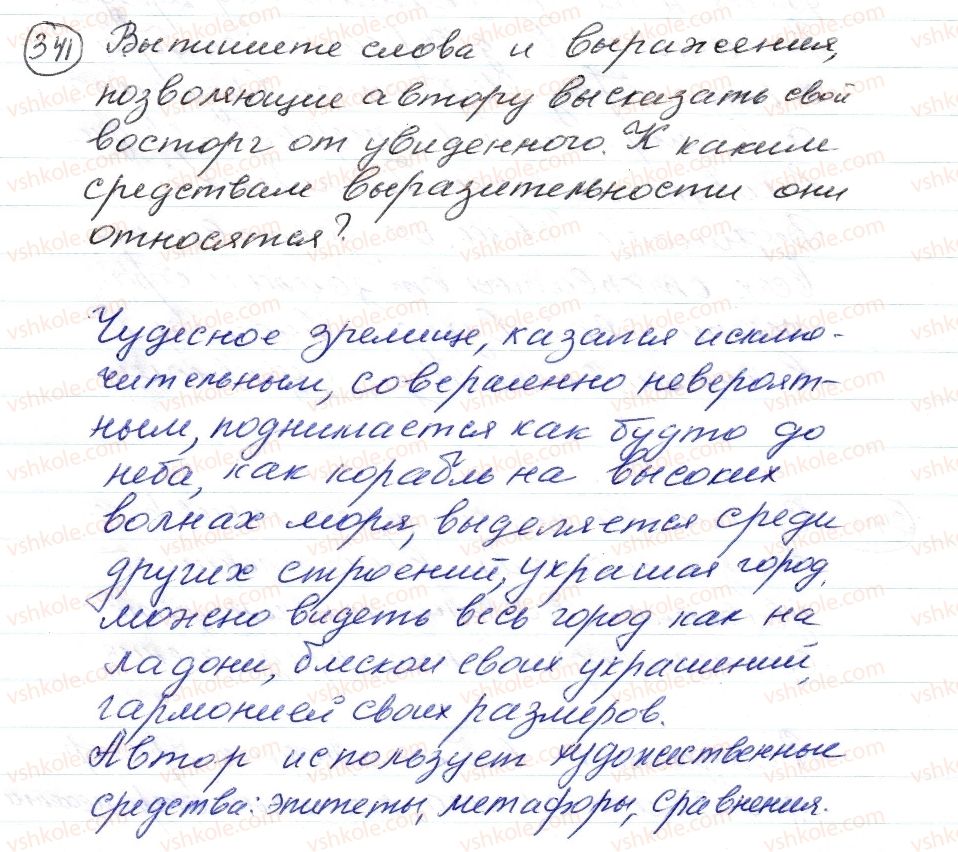 341 Выпишите слова и выражения,
позволяющие автору высказать свой
восторг от увиденного. К каким
средствам выразительности они
относятся?
Чудесное зрелище, казался исклю-
чительным, совершенно невероят-
ным, поднимается как будто до
неба, как корабль на высоких
волнах моря, выделяется среди
других строений, украшая город,
можено видеть весь город как на
ладони, блеском своих украшений,
гармонией своих размеров.
Автор использует художественные
средства: эпитеты, метафоры, сравнения.